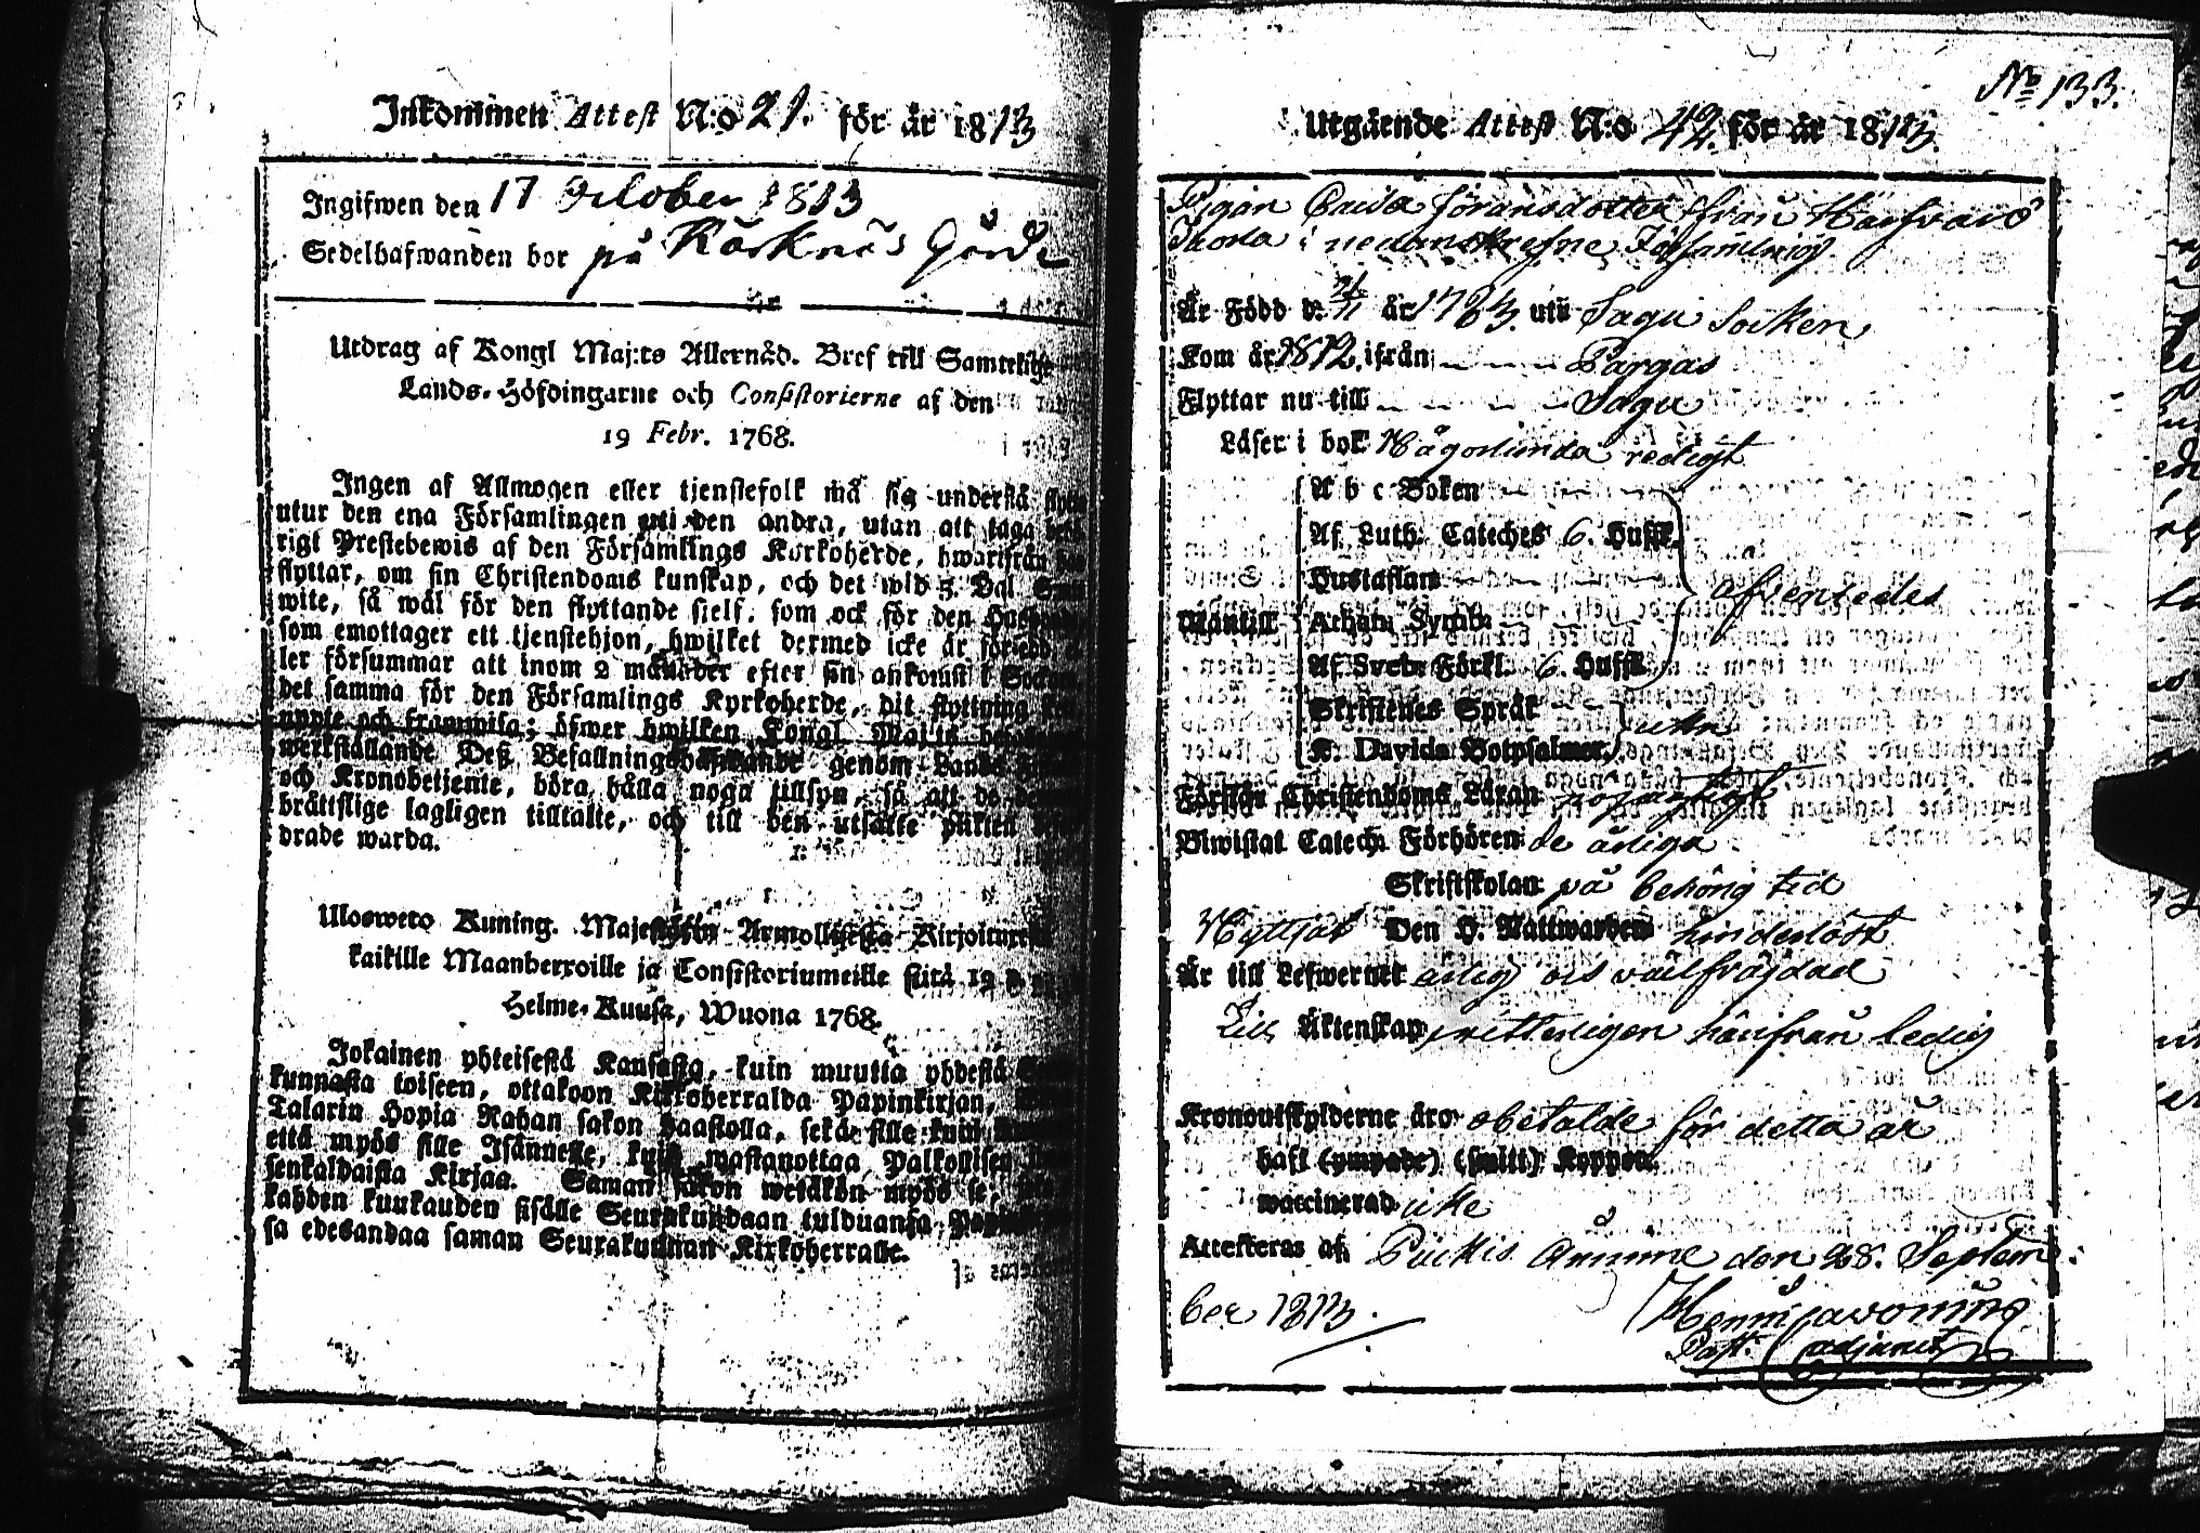 Inkommen Attest N:o 21. för år 1813
Ingifwen den 17 October 1813
Sedelhafwanden bor på Karknäs Gård
Utdrag af Kongl Maj:ts Allernåd. Bref till Samtelige
Lands-Höfdingarne och Consistorierne af den
19 Febr. 1768.
Ingen af Allmogen eller tjenstefolk må sig understå flytta
utur den ena Församlingen uti den andra, utan att taga behö-
rigt Prestebewis af den Församlings Kyrkoherde, hwarifrån han
flyttar, om sin Christendoms kunskap, och det wid 3. Dal
wite, så wäl för den flyttande sielf, som ock för den Husbonde
som emottager ett tjenstehjon, hwilket dermed icke är försedd
ler försummar att inom 2 månader efter sin ankomst i
det samma för den Församlings Kyrkoherde, dit flyttning
uppte och framwisa; öfwer hwilken Kongl Maj:ts
werkställande Deß Befallningshafwande genom Lands
och Kronobetjente, böra hålla noga tillsyn, så att de
brättslige lagligen tilltalte, och till den utsatte plikten
drade warda.
Ulosweto Kuning. Majestetin Armollisesta Kirjoituxesta
kaikille Maanherroille ja Consistoriumeille siitä 19 p
Helme-Kuusa, Wuona 1768.
Jokainen yhteisestä Kansasta, kuin muutta yhdestä
kunnasta toiseen, ottakoon Kirkoherralda Papinkirjan,
Talarin Hopia Rahan sakon haastolla, sekä sille kuin
että myös sille Isännelle, kuin wastanottaa Palkollisen
senkaldaista Kirjaa. Saman sakon wetäkön myös se,
kahden kuukauden sisälle Seurakundaan tulduansa
sa edesandaa saman Seurakunnan Kirkoherralle.
No 133.
Utgående Attest N:o 42. för år 1813.
Pigan Caisa Jöransdotter från Härfvarö
i nedanskrefne Församling.
Är Född d. 21/11 år 1763. uti Sagu Socken
Kom år 1812. ifrån Pargas
Flyttar nu till Sagu
Läser i bok Någorlunda redigt
A b c Boken
Af Luth. Cateches 6. Hufst.
Hustaflan
afrentedes
Wantill Athan: Symb:
Af Sveb: Förkl. 6. Hufst.
Skriftenes Språk
K. Davids Botpsalmer. icke
Förstår Christendoms Läran
Biwistat Catech. Förhören de årliga
Skriftskolan på behörig tid
Nyttjat Den H. Nattwarden hinderlöst
Är till Lefwernet ärlig och välfräjdad
Till Äktenskap witterligen härifrån ledig
Kronoutskylderne äro obetalde för detta år
haft (ympade) (smitt) Koppor
waccinerad icke
Attesteras af Påckis Aminne den 28. Septem:
ber 1813.
Past. adjunct